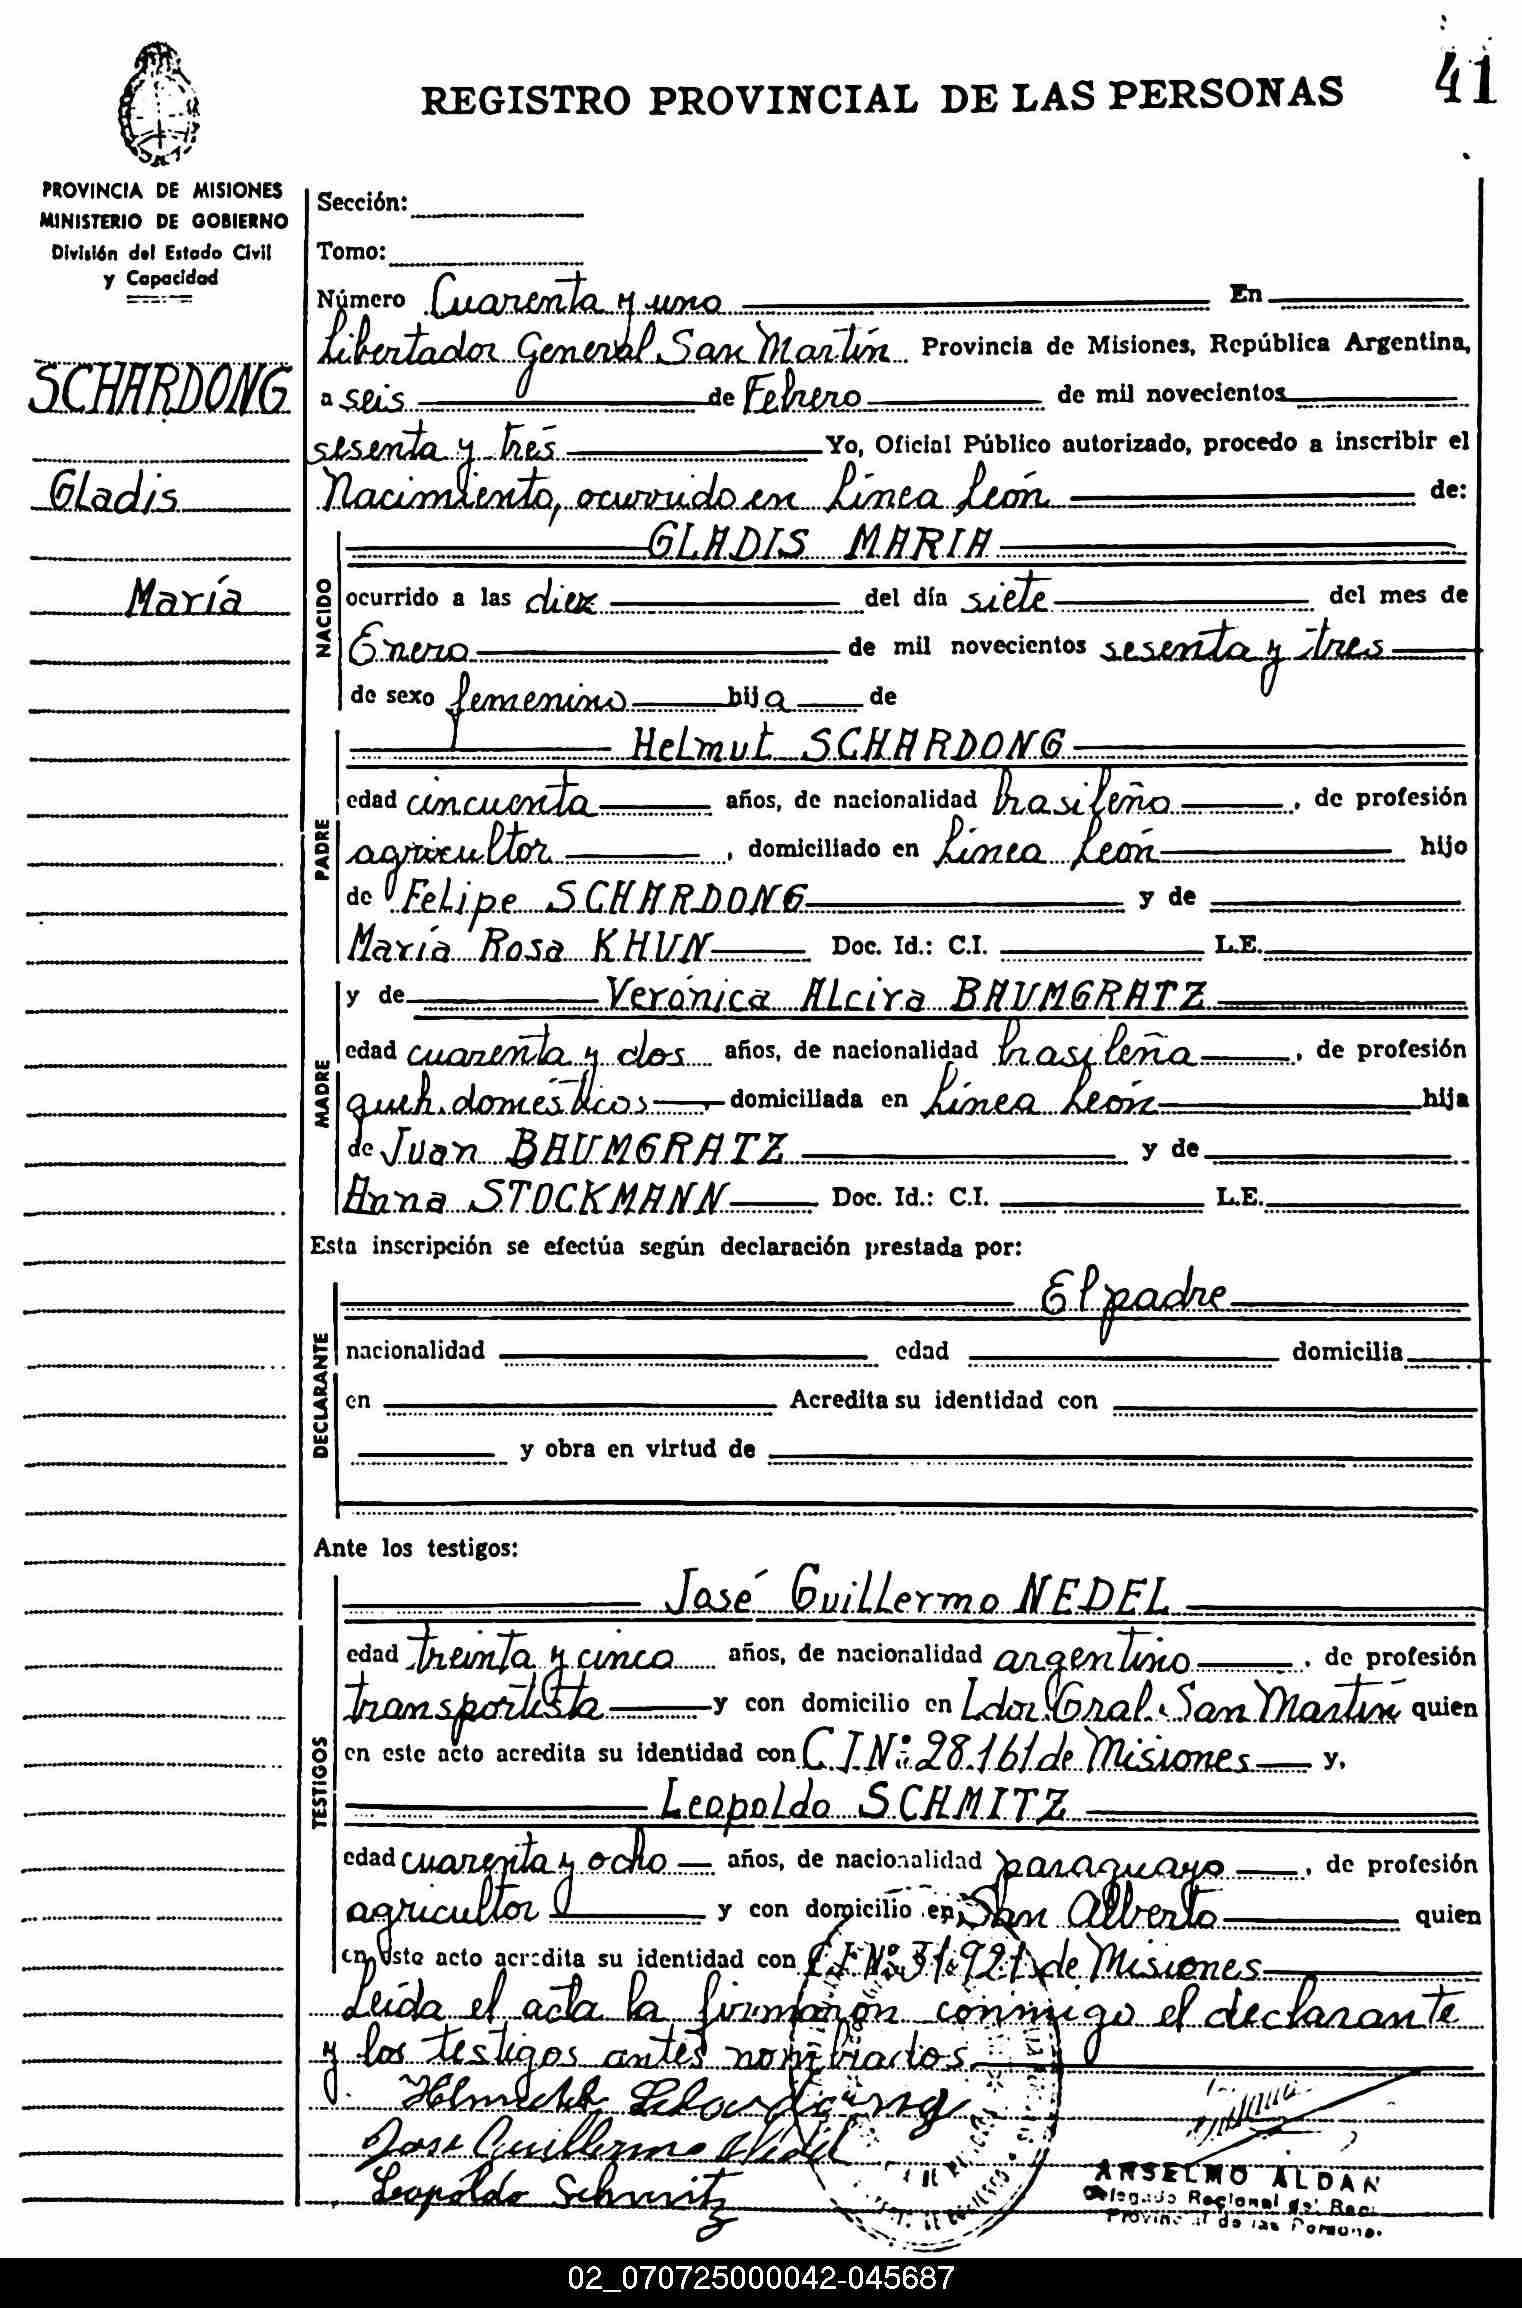 41
REGISTRO PROVINCIAL DE LAS PERSONAS
PROVINCIA DE MISIONES
MINISTERIO DE GOBIERNO
División del Estado Civil
y Capacidad
SCHARDONG
Gladis
María
Sección:
Tomo:
Número Cuarenta y uno En
Libertador General San Martín Provincia de Misiones, República Argentina,
a seis de Febrero de mil novecientos
sesenta y tres Yo, Oficial Público autorizado, procedo a inscribir el
Nacimiento, ocurrido en Línea León de:
NACIDO
GLADIS MARIA
ocurrido a las diez del día siete del mes de
Enero de mil novecientos sesenta y tres
de sexo femenino hija de
PADRE
Helmut SCHARDONG
edad cincuenta años, de nacionalidad brasileño, de profesión
agricultor, domiciliado en Línea León hijo
de Felipe SCHARDONG y de
María Rosa KHUN Doc. Id.: C.I. L.E.
MADRE
y de Verónica Alcira BAUMGRATZ
edad cuarenta y dos años, de nacionalidad brasileña, de profesión
queh. domésticos, domiciliada en Línea León hija
de Juan BAUMGRATZ y de
Anna STOCKMANN Doc. Id.: C.I. L.E.
Esta inscripción se efectúa según declaración prestada por:
DECLARANTE
El padre
nacionalidad edad domicilia
en Acredita su identidad con
y obra en virtud de
Ante los testigos:
TESTIGOS
José Guillermo NEDEL
edad treinta y cinco años, de nacionalidad argentino, de profesión
transportista y con domicilio en Ldor. Gral. San Martín quien
en este acto acredita su identidad con C.I.Nº: 28.161 de Misiones y,
Leopoldo SCHMITZ
edad cuarenta y ocho años, de nacionalidad paraguayo, de profesión
agricultor y con domicilio en San Alberto quien
en este acto acredita su identidad con C.I.Nº: 31.921 de Misiones
Leída el acta la firmaron conmigo el declarante
y los testigos antes nombrados
Helmuth Schardong
Jose Guillermo Nedel
Leopoldo Schmitz
ANSELMO ALDAN
Delegado Regional del Reg.
Provincial de las Personas
02_070725000042-045687